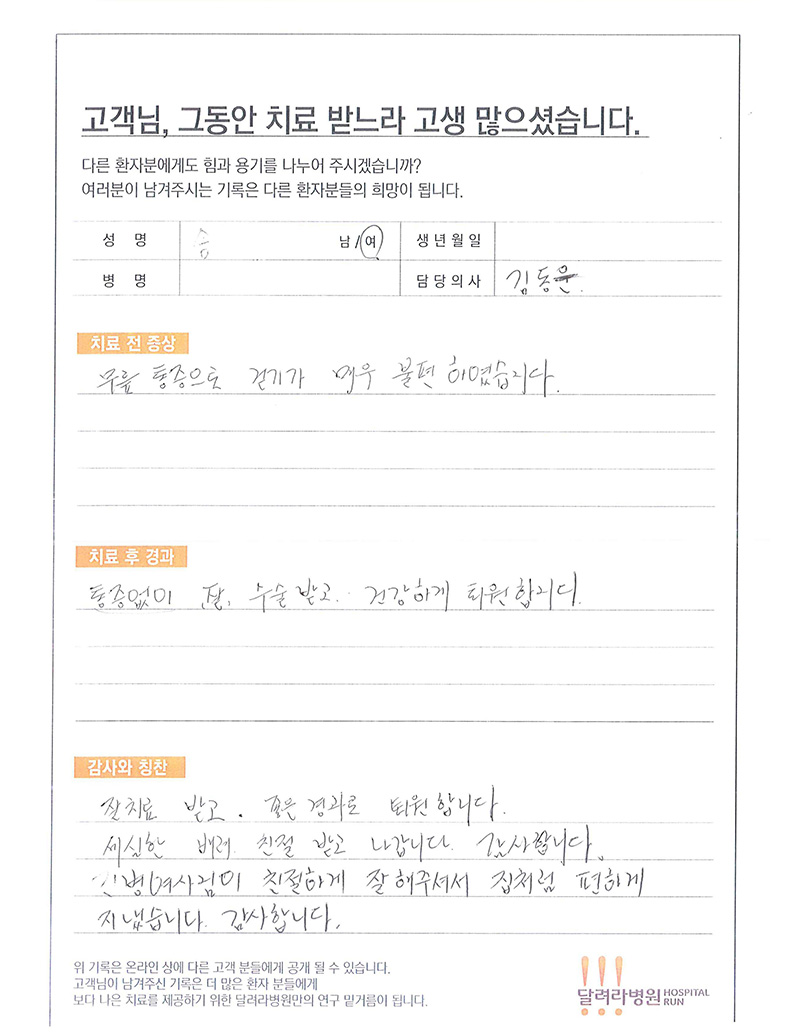 고객님, 그동안 치료 받느라 고생 많으셨습니다.
다른 환자분에게도 힘과 용기를 나누어 주시겠습니까?
여러분이 남겨주시는 기록은 다른 환자분들의 희망이 됩니다.
성 명 송 남/여 생년월일
병 명 담당의사 김동윤.
치료 전 증상
무릎 통증으로 걷기가 매우 불편 하였습니다.
치료 후 경과
통증없이 잘, 수술 받고. 건강하게 퇴원합니다.
감사와 칭찬
잘치료 받고. 좋은 경과로 퇴원합니다.
세심한 배려 친절 받고 나갑니다. 감사합니다.
친절하게 잘해주셔서 집처럼 편하게
지냈습니다. 감사합니다.
위 기록은 온라인 상에 다른 고객 분들에게 공개 될 수 있습니다.
고객님이 남겨주신 기록은 더 많은 환자 분들에게
보다 나은 치료를 제공하기 위한 달려라병원만의 연구 밑거름이 됩니다.
!!!
달려라병원 HOSPITAL RUN